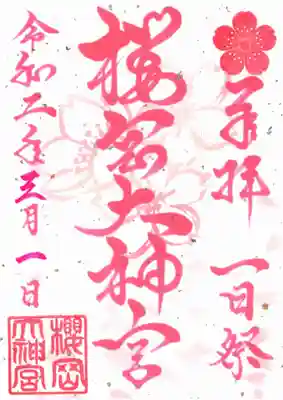 奉拝 一日祭
櫻岡大神宮
令和二年三月一日
櫻岡
大神宮